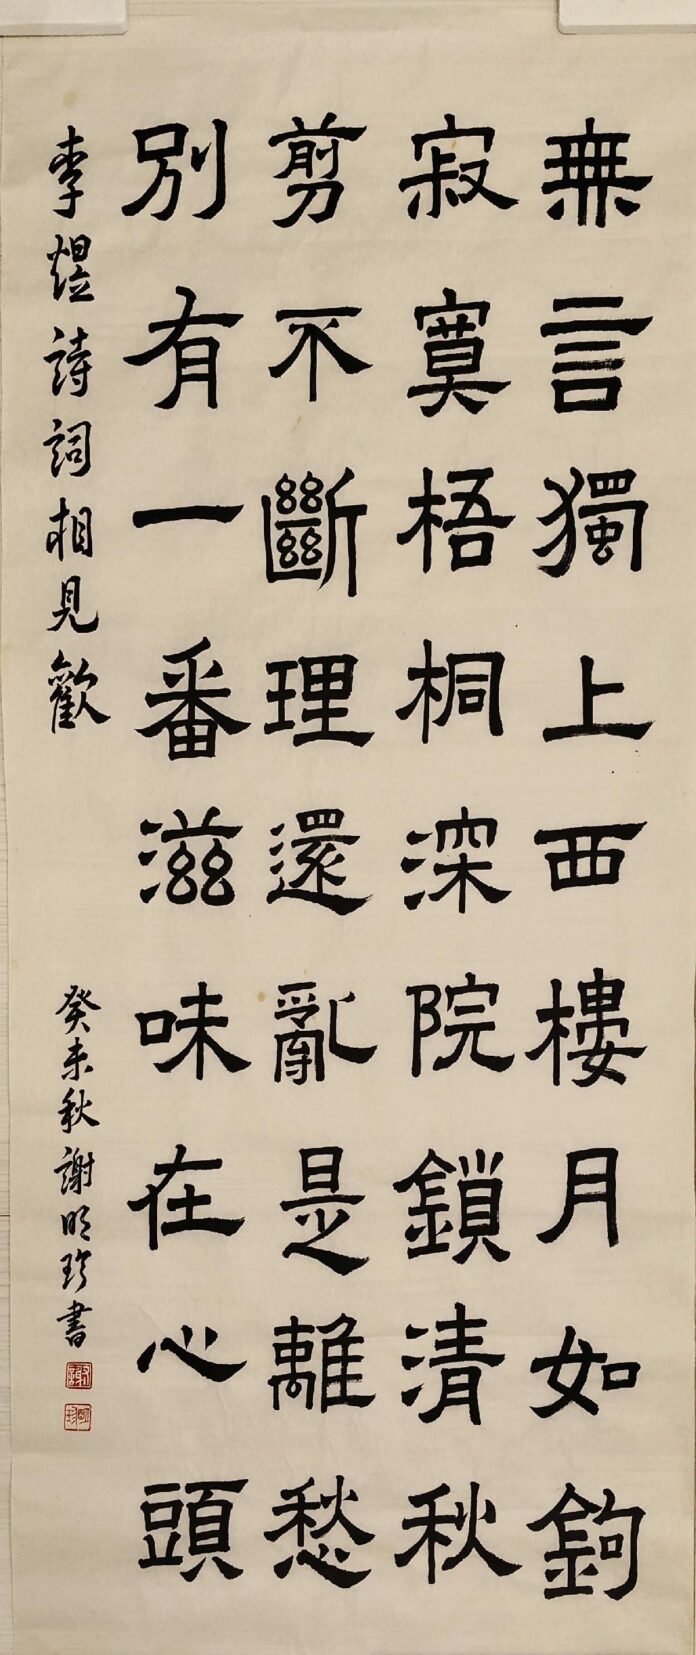 無言獨上西樓月如鉤
寂寞梧桐深院鎖清秋
剪不斷理還亂是離愁
別有一番滋味在心頭
李煜詩詞相見歡
癸未秋謝明珍書